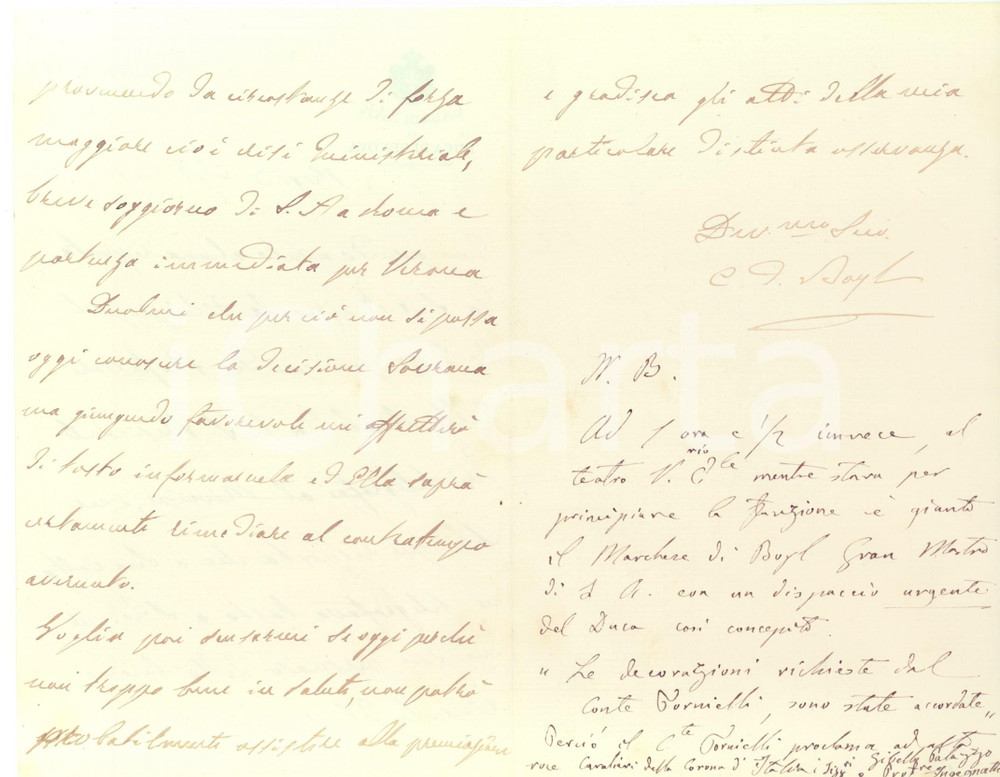 provenendo da circostanze di forza
maggiore cioè crisi ministeriale,
breve soggiorno di S. A a Roma e
partenza immediata per Verona
Duolmi che perciò non si possa
oggi conoscere la decisione Sovrana
ma giungendo favorevole mi affretterò
di tosto informarnela ed Ella saprà
certamente rimediare al contrattempo
avvenuto.
Voglia poi scusarmi se oggi perchè
non troppo bene in salute, non potrò
probabilmente assistere alla premiazione
e gradisca gli atti della mia
particolare distinta osservanza.
Dev.mo Suo.
C d. Boyl
N. B.
Ad 1 ora e 1/2 invece, al
teatro V. E.le mentre stava per
principiare la funzione è giunto
il Marchese di Boyl Gran Mastro
di S A. con un dispaccio urgente
del Duca così concepito.
" Le decorazioni richieste dal
Conte Tornielli, sono state accordate "
Perciò il C.te Tornielli proclama ad alta
voce Cavalieri della Corona d'Italia i Sigg.ri
icharta